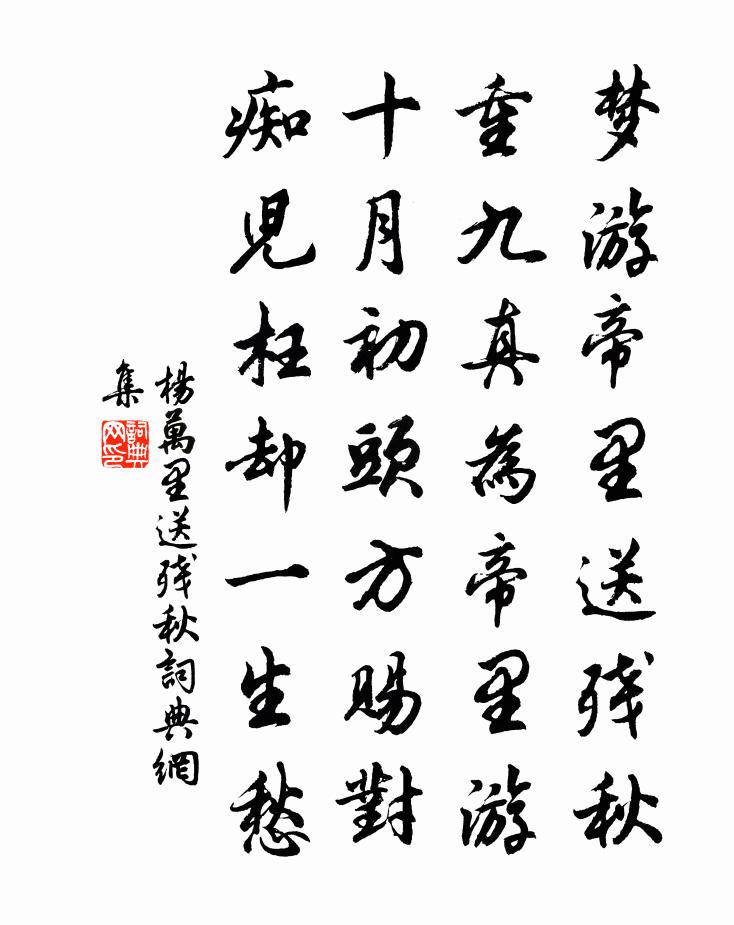 梦游帝里送残秋
重九真為帝里游
十月初頭方賜對
痴児枉却一生愁
楊萬里送残秋詞典網
集
詞典
网印